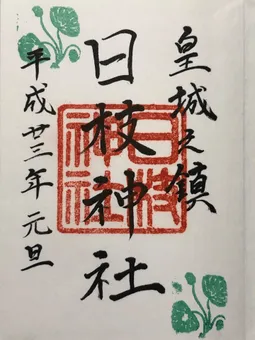 皇城之鎮
日枝神社
平成廿三年元旦
日枝
神社